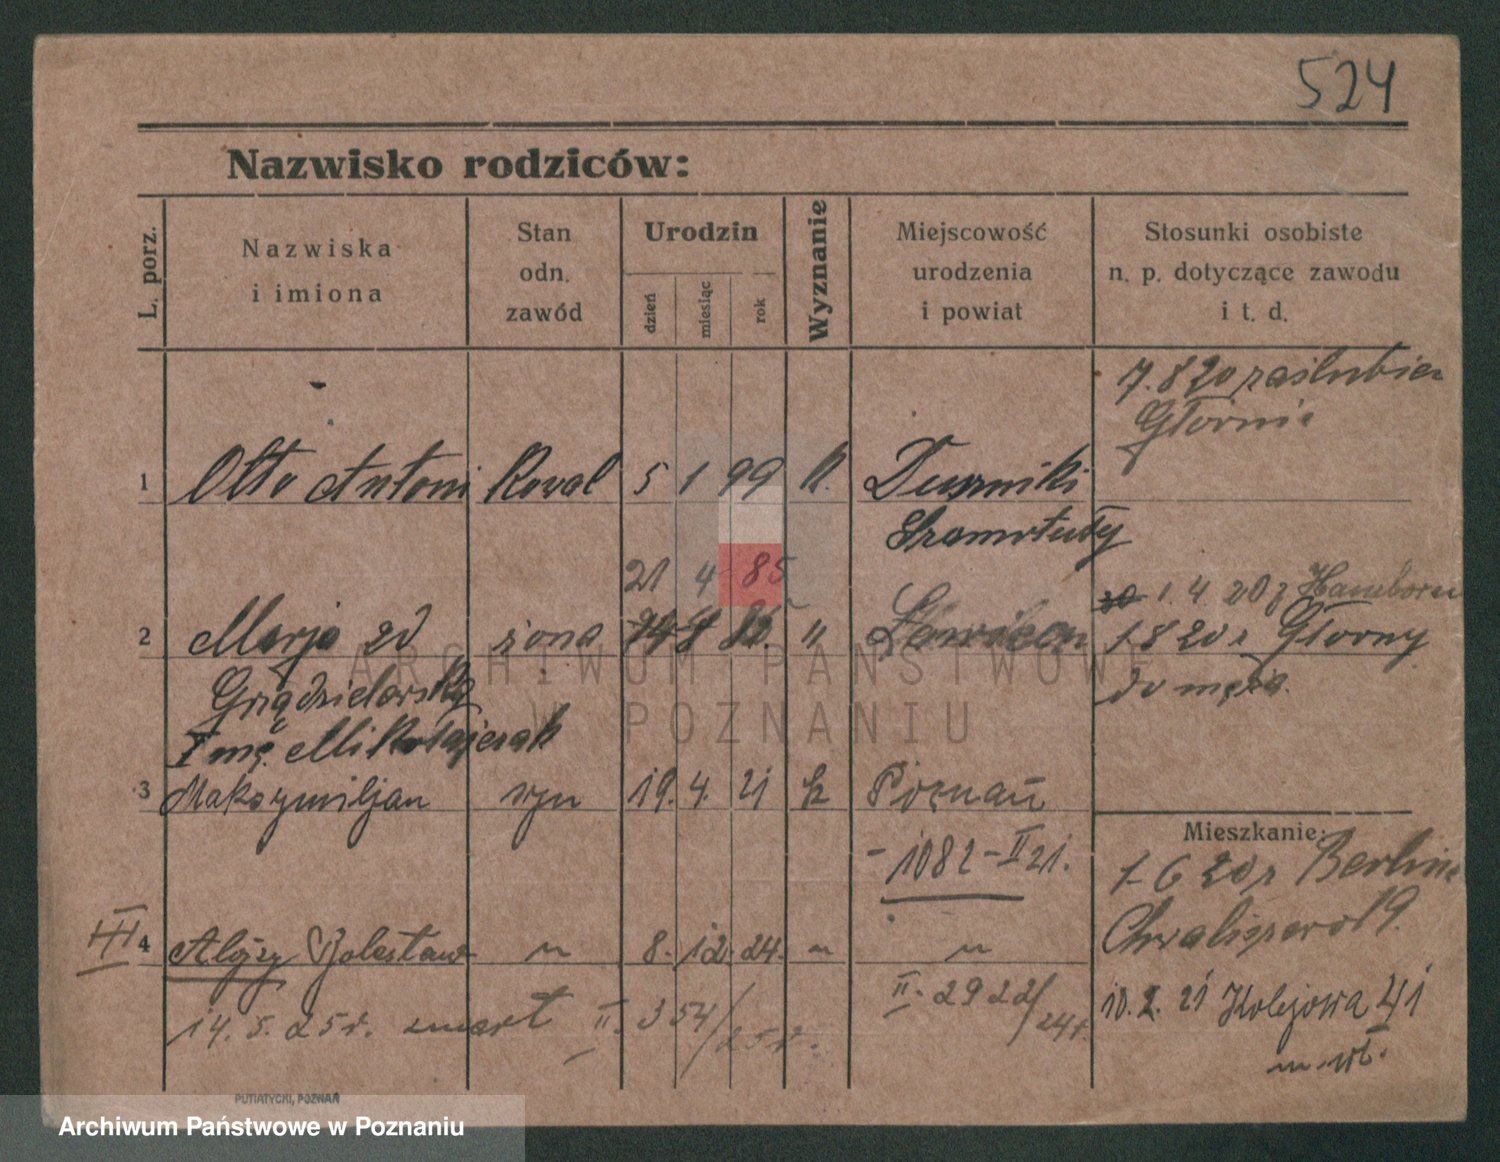 524
Nazwisko rodziców:
L. porz.
Nazwiska
i imiona
Stan
odn.
zawód
Urodzin
dzień
miesiąc
rok
Wyznanie
Miejscowość
urodzenia
i powiat
Stosunki osobiste
n. p. dotyczące zawodu
i t. d.
7.8 20 zaślubien
1 Otto Antoni Kowal 5 1 99 k. Duszniki
21 4 85
1.4 20 z Hamborn
2 Marja zd żona "
1 8 20 z
do męża.
I mę. Mikołajczak
3 Maksymiljan syn 19. 4. 21 k Poznań
Mieszkanie:
- 1082 - II 21.
1-6 20 z Berlina
III
4 Alojzy Bolesław " 8. 12. 24. " "
Chwaliszewo 19.
II. 2922/24 r.
10. 2. 21 Kolejowa 41
14. 5. 25 r. zmarł II. 354/25 r.
PUTIATYCKI, POZNAŃ
ARCHIWUM PAŃSTWOWE
W POZNANIU
Archiwum Państwowe w Poznaniu